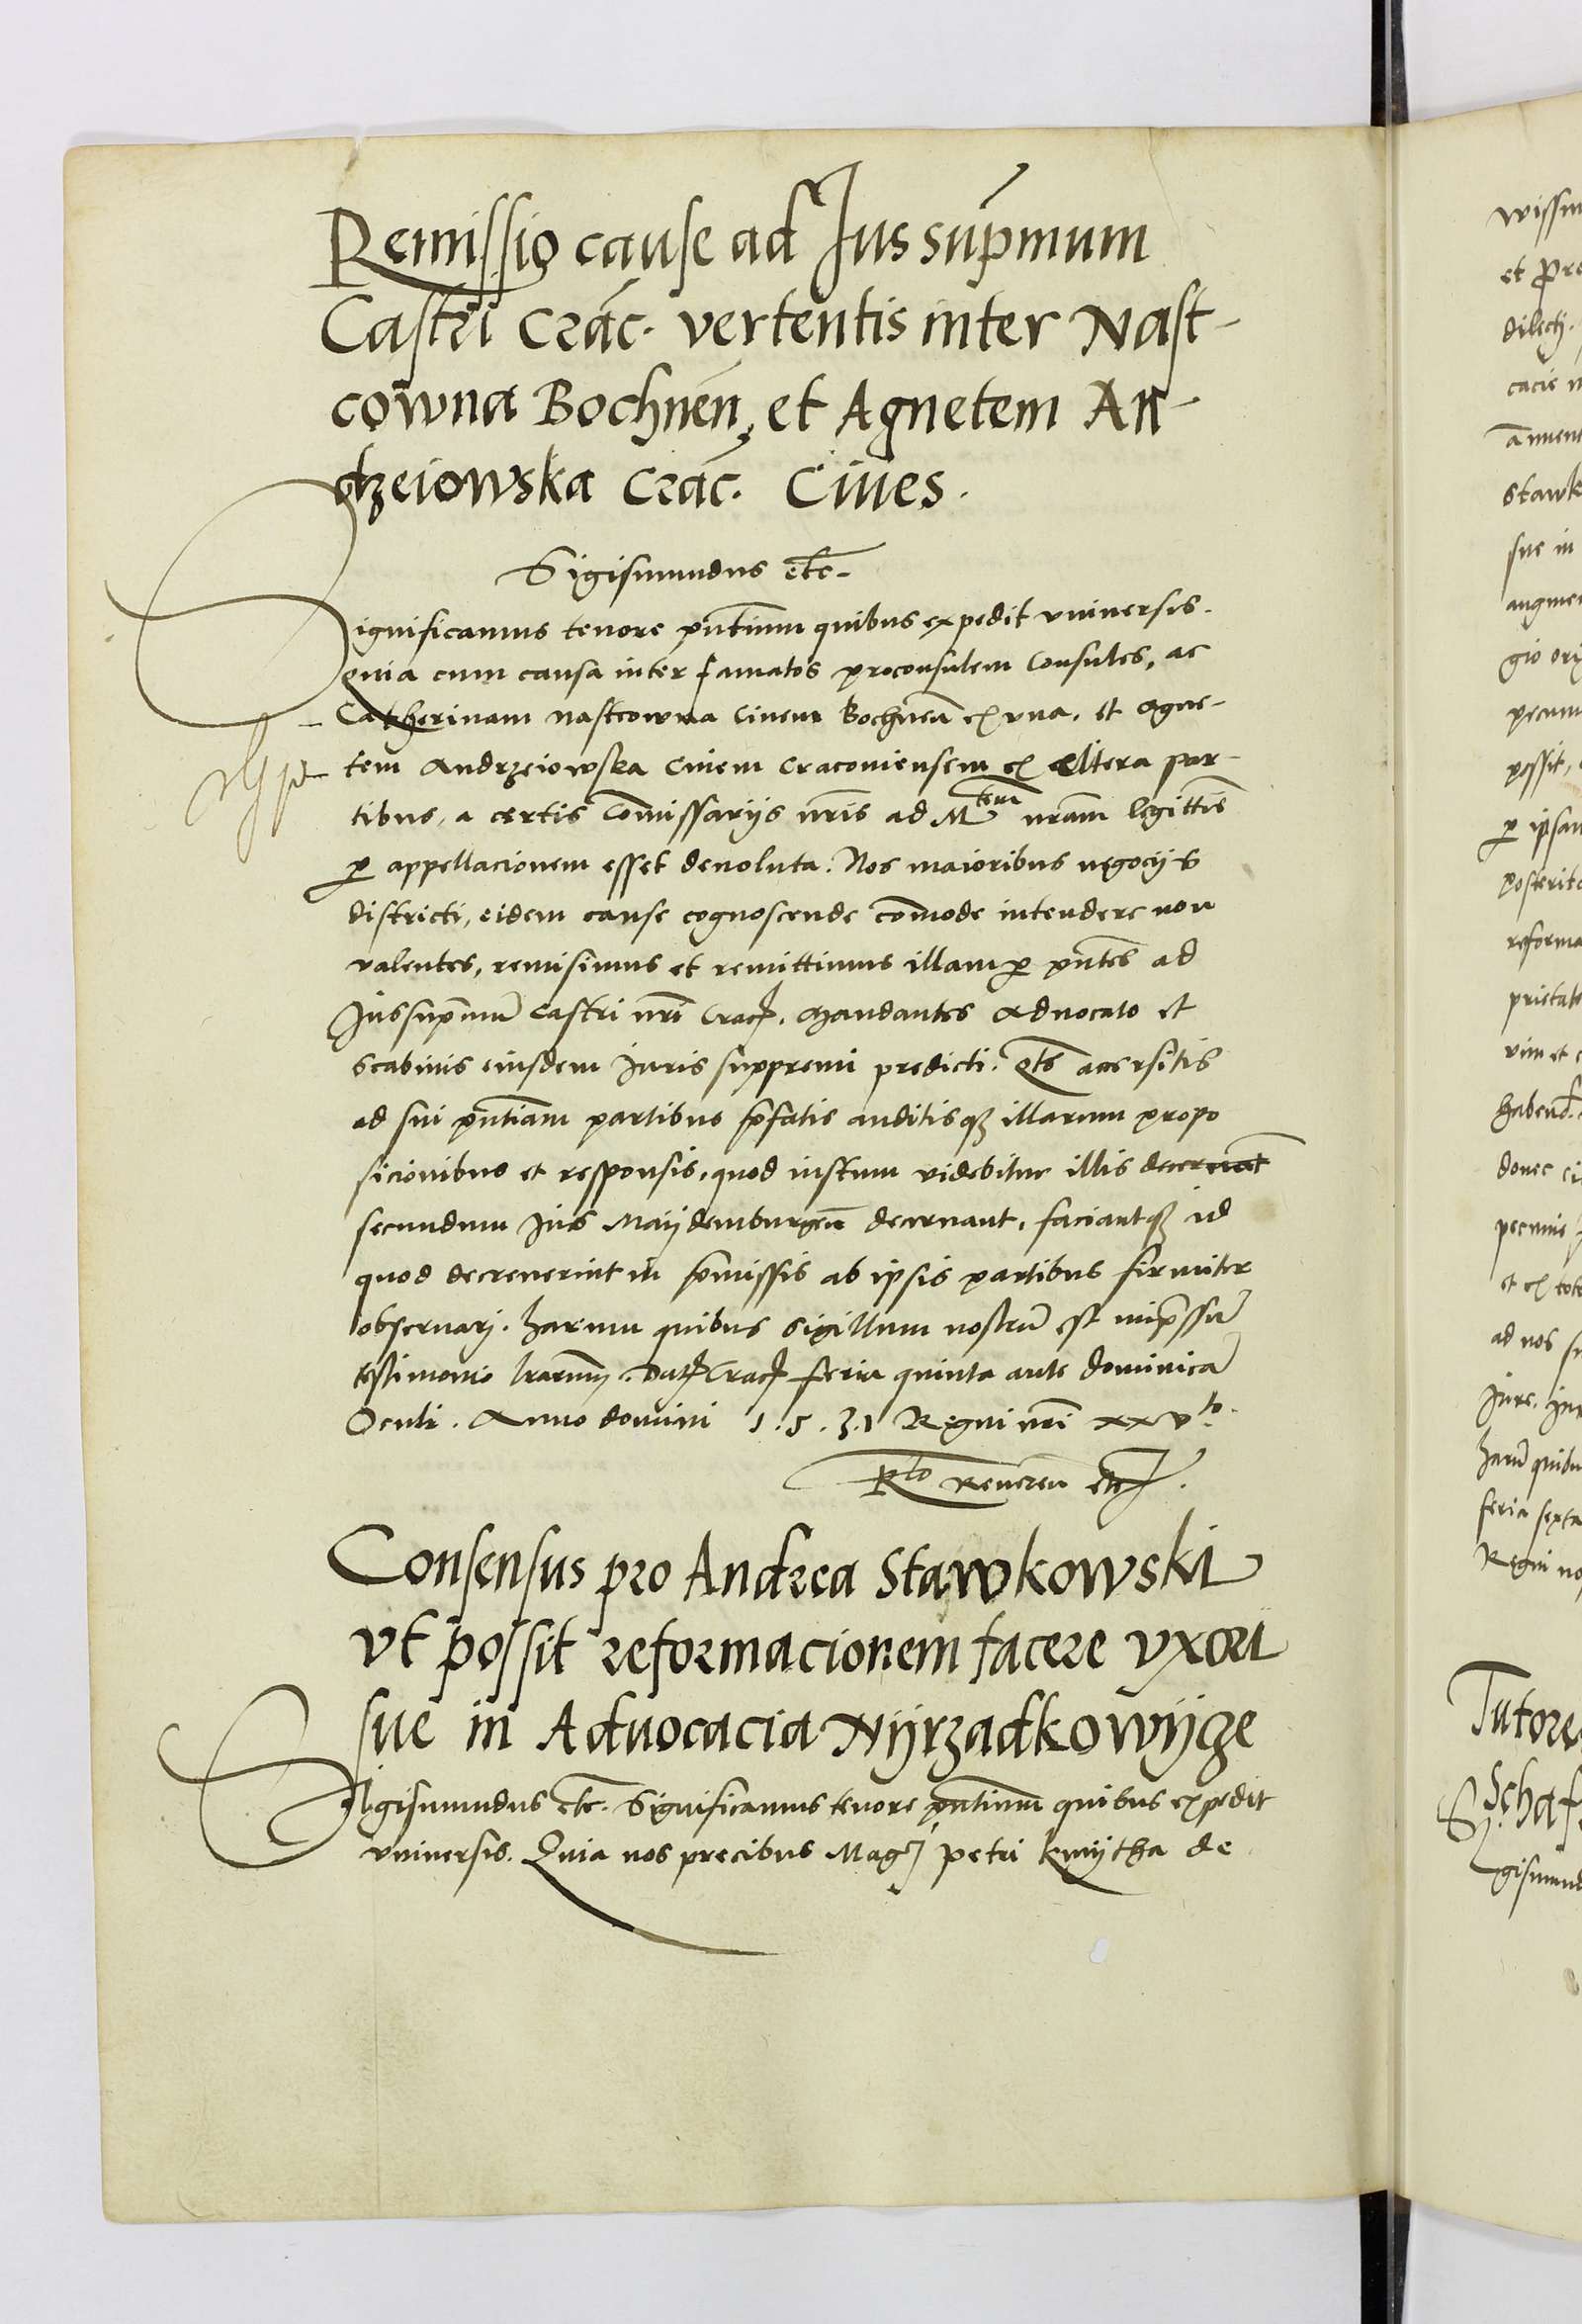 Remissio cause ad Jus sup̄mum
Castri Crac̄. vertentis inter Nast-
cowna Bochnen̄, et Agnetem An-
dzeiowska Crac̄. Ciues.
Sigismundus etc̄.
Significamus tenore pn̄tium quibus expedit vniuersis.
Quia cum causa inter famatos proconsulem Consules, ac
Catherinam nastcowna Ciuem Bochnen̄ ex vna, et Agne-
tem Andrzeiowska Ciuem Cracouiensem ex Altera par-
tibus, a certis Com̄issarijs nr̄is ad M^tem nr̄am legittīe
p̱ appellacionem esset deuoluta. Nos maioribus negocijs
districti, eidem cause cognoscende com̄ode intendere non
valentes, remisimus et remittimus illam p̱ pn̄tes ad
Jus sup̄mum̄ Castri nr̄i Crac. Mandantes Aduocato et
Scabinis eiusdem Juris suppremi predicti. Qt̄s accersitis
ad sui pn̄tiam partibus p̄fatis auditisqꝫ illarum propo
sicionibus et responsis, quod iustum videbitur illis decernat
secundum Jus Maijdemburgen̄ decernant, faciantqꝫ id
quod decreuerint in p̄missis ab ipsis partibus firmiter
obseruarj. harum quibus sigillum nostrum̄ est imp̄ssum̄
testimonio lr̄arum. Dat Crac feria quinta ante dominicā
Oculi. Anno domini 1.5.3.1 Regni nr̄i xxv^to.
R^to Reueren etc.
Consensus pro Andrea Stawkowski
vt possit reformacionem facere vxori
sue in Aduocacia Nijrzadkowijcze
Sigismundus etc̄. Significamus tenore pn̄tium quibus expedit
vniuersis. Quia nos precibus Mag petri kmijtha de
wissm
et pre
dilecti.
cacie
annuen
stawk
sue in
augmen
gio ori
pecun
possit,
p̱ ipsam
posterita
reforma
prietat
vim et
habend.
donec
pecunie
et ex tot
ad nos
Jure.
harum̄ quibu
feria sexta
Regni no
Tutore
Schaf
gismund